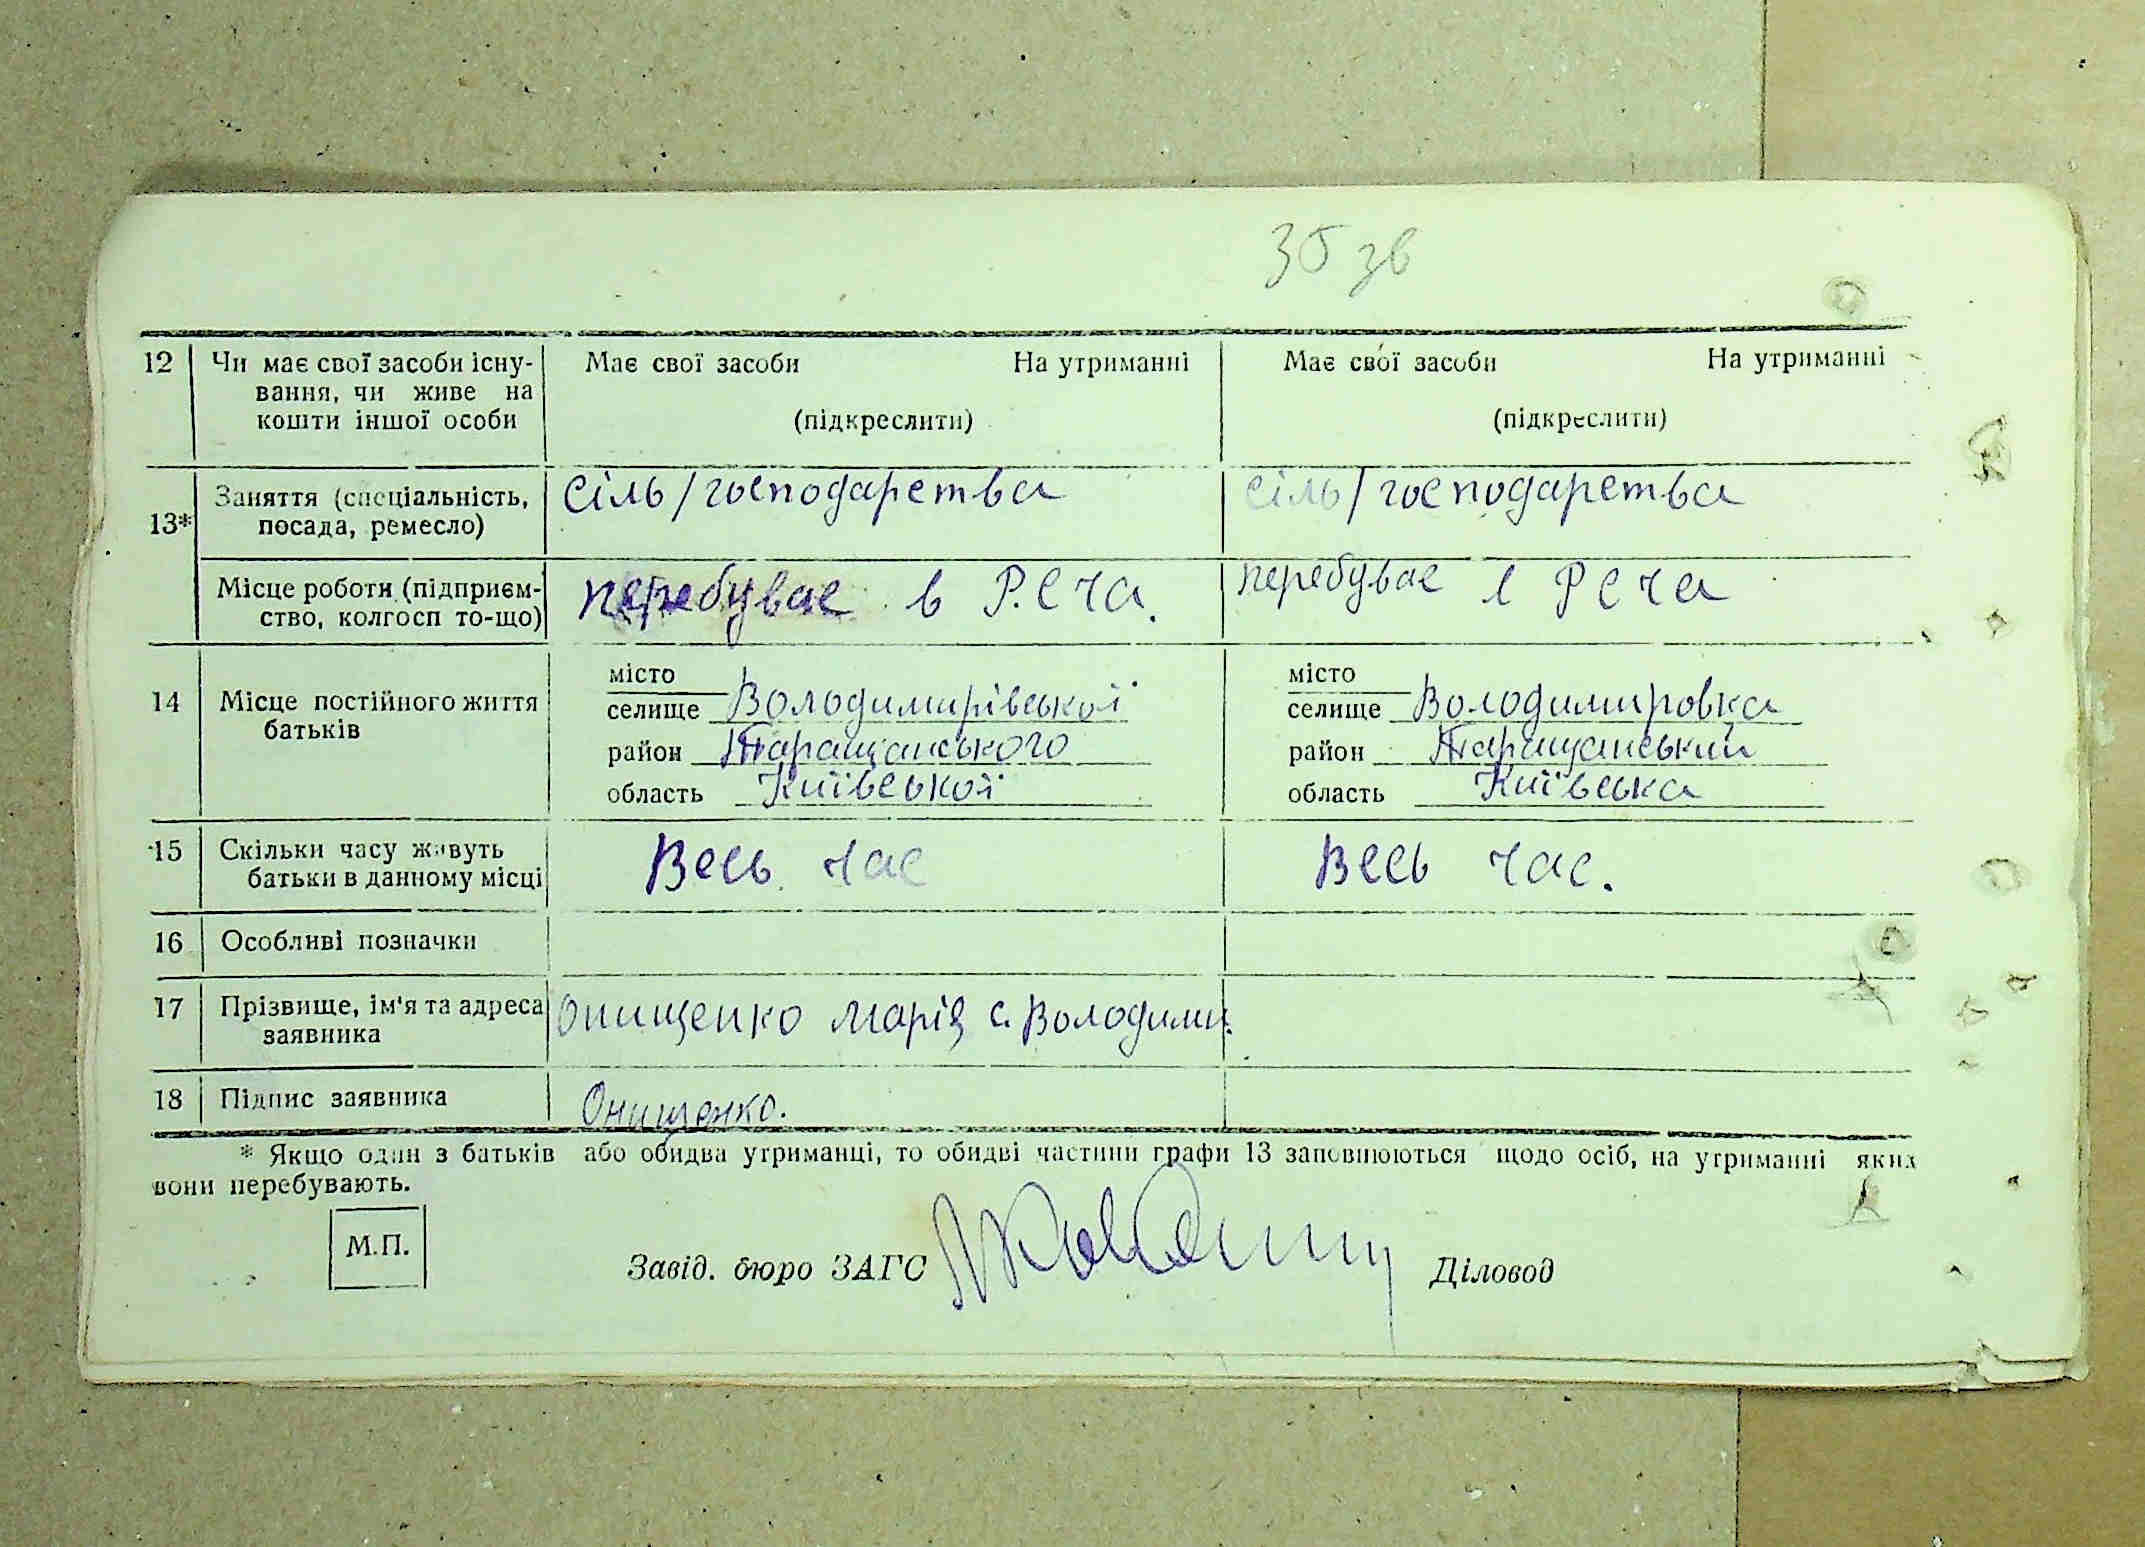 35 зв
12 Чи має свої засоби існу- Має свої засоби На утриманні Має свої засоби На утриманні
вання, чи живе на
кошти іншої особи (підкреслити) (підкреслити)
13* Заняття (спеціальність, сіль/господарства сіль/господарства
посада, ремесло)
Місце роботи (підприєм- перебуває в Р.С.ЧА. перебуває в РСЧА
ство, колгосп то-що)
14 Місце постійного життя місто місто
батьків селище Володимирівської селище Володимировка
район Таращанського район Таращанський
область Київської область Київська
15 Скільки часу живуть Весь час Весь час.
батьки в данному місці
16 Особливі позначки
17 Прізвище, ім'я та адреса Онищенко Марія с. Володими.
заявника
18 Підпис заявника Онищенко.
* Якщо один з батьків або обидва утриманці, то обидві частини графи 13 заповнюються щодо осіб, на утриманні яких
вони перебувають.
М.П.
Завід. бюро ЗАГС Діловод